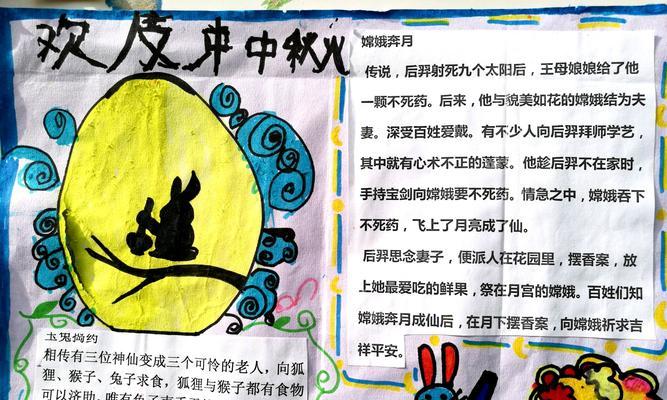 欢度中秋
玉兔捣药
相传有三位神仙变成三个可怜的老人，向狐
狸、猴子、兔子求食，狐狸与猴子都有食物
可以济助，唯有兔子束手
嫦娥奔月
传说，后羿射死九个太阳后，王母娘娘给了他
一颗不死药。后来，他与貌美如花的嫦娥结为夫
妻。深受百姓爱戴。有不少人向后羿拜师学艺，
其中就有心术不正的蓬蒙。他趁后羿不在家时，
手持宝剑向嫦娥要不死药。情急之中，嫦娥吞下
不死药，飞上了月亮成了仙。
后羿思念妻子，便派人在花园里，摆香案，放
上她最爱吃的鲜果，祭在月宫的嫦娥。百姓们知
嫦娥奔月成仙后，在月下摆香案，向嫦娥祈求吉
祥平安。